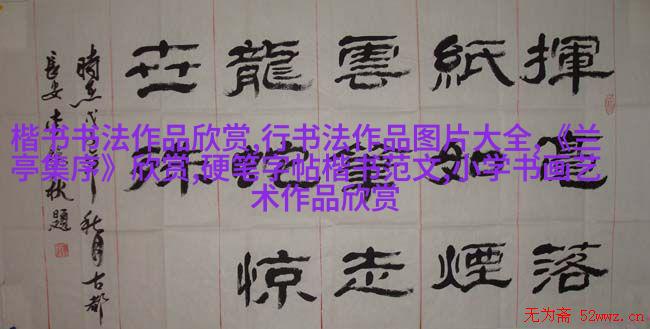 楷书书法作品欣赏,行书法作品图片大全,《兰
亭集序》欣赏,硬笔字帖楷书范文,小学书画艺
术作品欣赏
揮 落
紙如煙
雲筆走
龍蛇惊
世
秋月古都
長安 題
无为斋 52wwz.cn